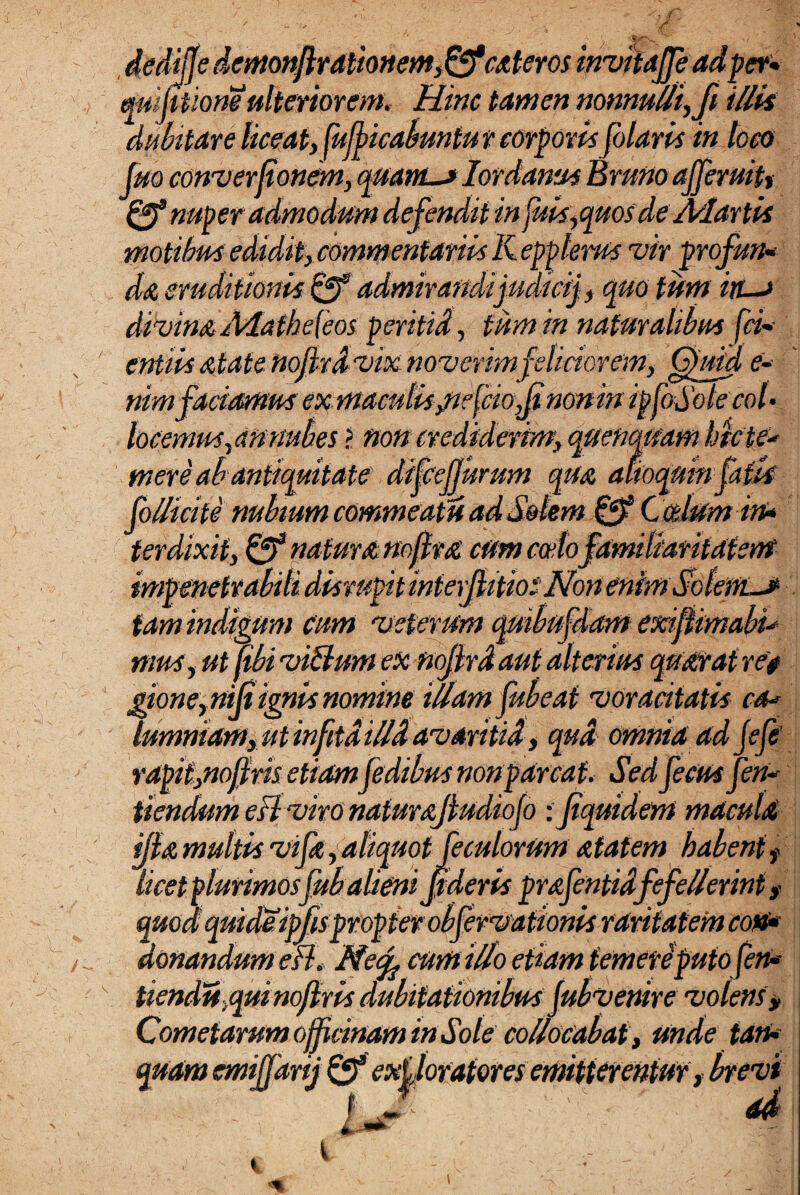 dediſſe demonſtrationem, & cæteros invitaſſe ad per-
quiſitionē ulteriorem. Hinc tamen nonnulli, ſi illis
dubitare liceat, ſuſpicabuntur corporis ſolaris in loco
ſuo converſionem, quam Iordanus Bruno aſſeruit,
& nuper admodum defendit in ſuis, quos de Martis
motibus edidit, commentariis Kepplerus vir profun-
dæ eruditionis & admirandi judicij, quo tùm in
divinæ Matheſeos peritiâ, tùm in naturalibus ſci-
entiis ætate noſtrâ vix noverim feliciorem, Quid e-
nim faciamus ex maculis, neſcio, ſi non in ipſo Sole col-
locemus, an nubes? non crediderim, quenquam hîc te-
merè ab antiquitate diſceſſurum quæ alioquin ſatis
ſollicitè nubium commeatū ad Solem & Cœlum in-
terdixit, & naturæ noſtræ cùm cœlo familiaritatem
impenetrabili disrupit interſtitio: Non enim Solem
tam indigum cum veterum quibuſdam exiſtimabi-
mus, ut ſibi victum ex noſtrâ aut alterius quærat re-
gione, niſi ignis nomine illam ſubeat voracitatis ca-
lumniam, ut inſitâ illâ avaritiâ, quâ omnia ad ſeſe
rapit, noſtris etiam ſedibus non parcat. Sed ſecus ſen-
tiendum eſt viro naturæ ſtudioſo: ſiquidem maculæ
iſtæ multis viſæ, aliquot ſeculorum ætatem habent,
licet plurimos ſub alieni ſideris præſentiâ fefellerint,
quod quidē ipſis propter obſervationis raritatem con-
donandum eſt. Neq; cum illo etiam temerè puto ſen-
tiendū, qui noſtris dubitationibus ſubvenire volens,
Cometarum officinam in Sole collocabat, unde tan-
quam emiſſarij & exploratores emitterentur, brevi
ad